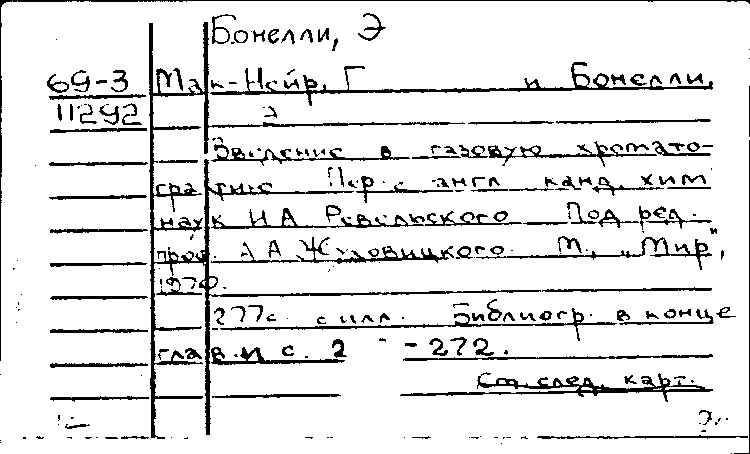 Бонелли, Э
69-3 Мак-Нейр, Г и Бонелли,
11292 Э
Введение в газовую хромато-
графию Пер. с англ канд. хим
наук И А Ревельского Под ред.
проф. А А Жуховицкого М, „Мир",
1970.
277с. с илл. Библиогр. в конце
глав и с. 2 -272.
См. след. карт.